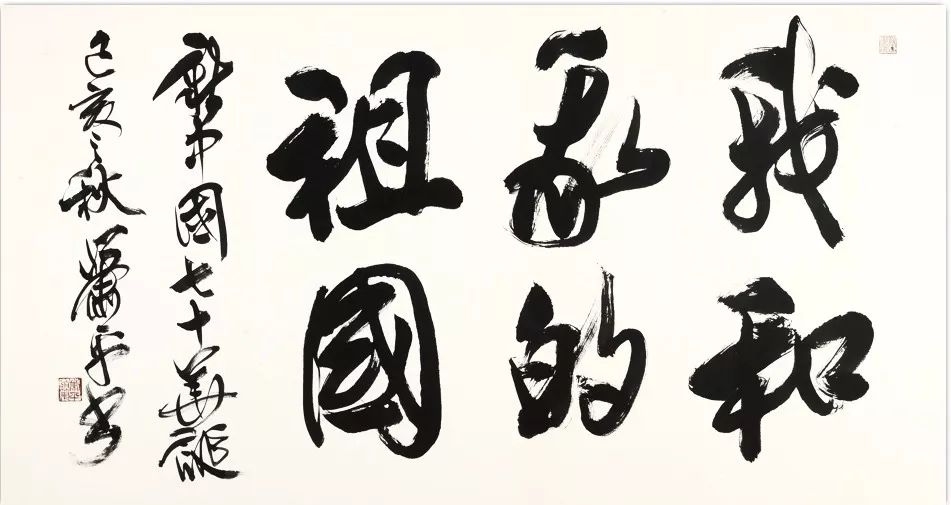 我和
我的
祖國
新中國七十華誕
己亥之秋蕭平書